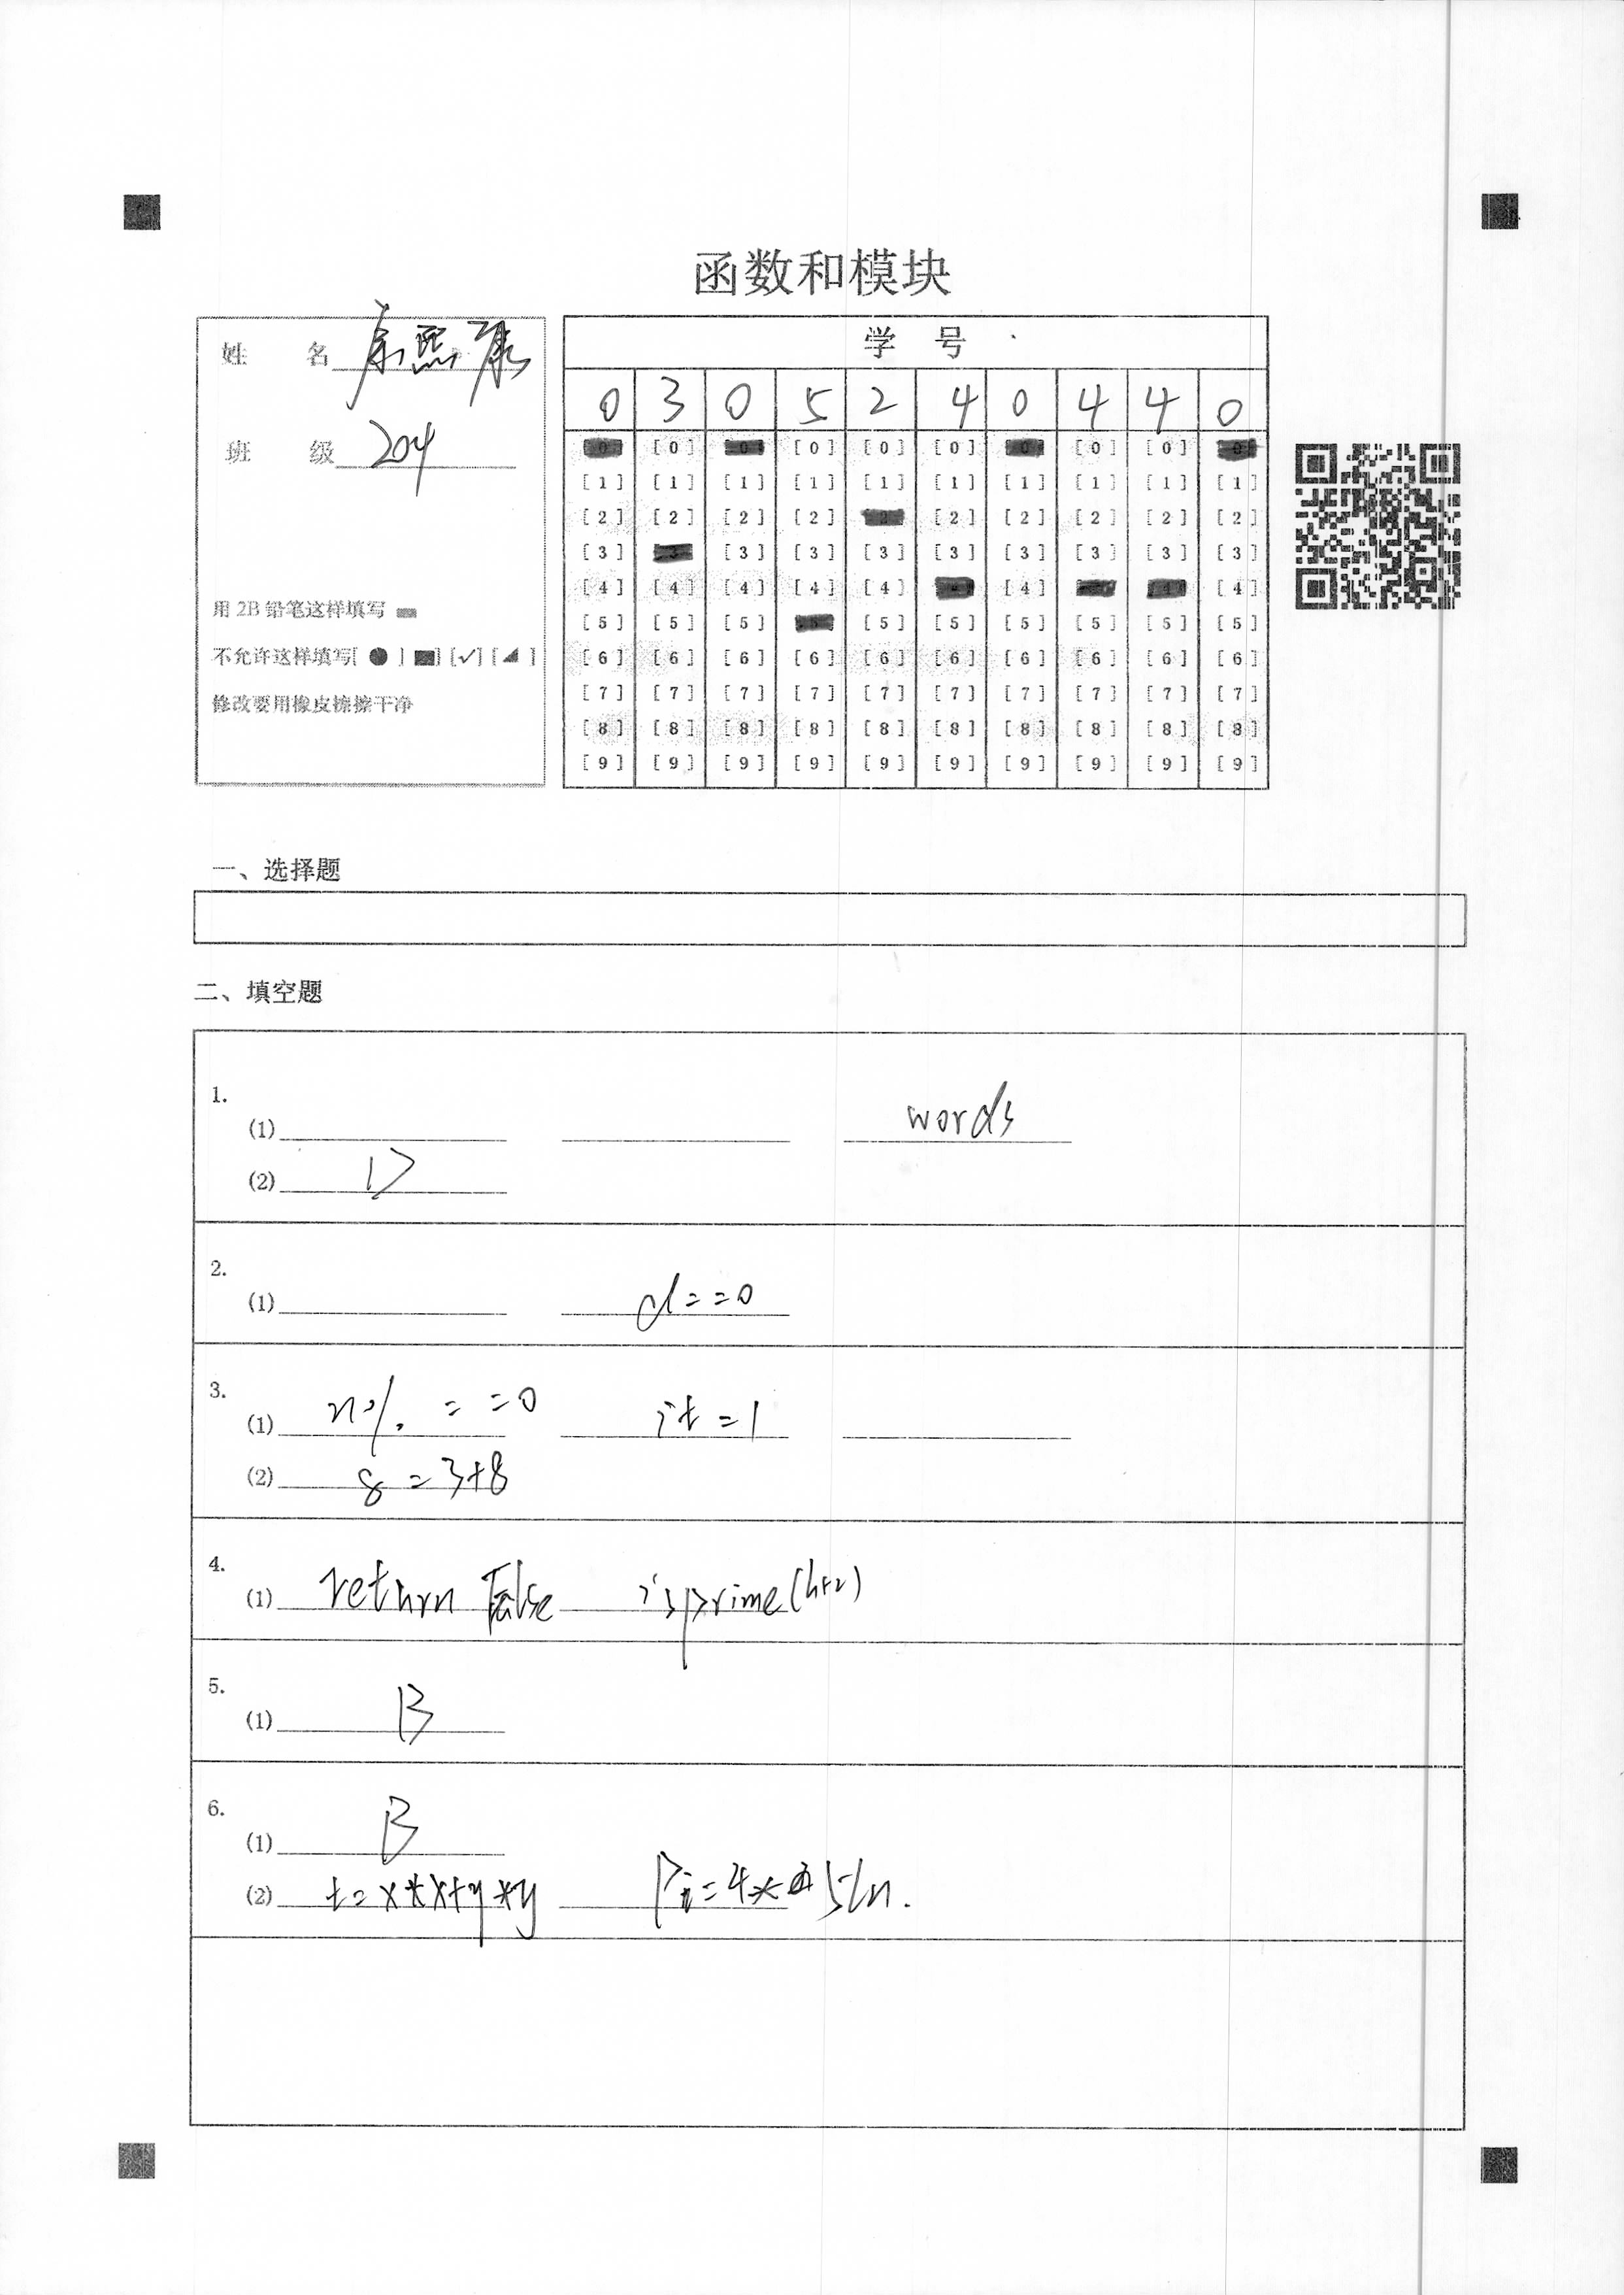 函数和模块
姓 名 熙康
班 级 204
用 2B 铅笔这样填写
不允许这样填写[ ● ] [✓] [ ]
修改要用橡皮擦擦干净
学 号
0 3 0 5 2 4 0 4 4 0
[0] [0] [0] [0] [0] [0] [0] [0] [0] [0]
[1] [1] [1] [1] [1] [1] [1] [1] [1] [1]
[2] [2] [2] [2] [2] [2] [2] [2] [2] [2]
[3] [3] [3] [3] [3] [3] [3] [3] [3] [3]
[4] [4] [4] [4] [4] [4] [4] [4] [4] [4]
[5] [5] [5] [5] [5] [5] [5] [5] [5] [5]
[6] [6] [6] [6] [6] [6] [6] [6] [6] [6]
[7] [7] [7] [7] [7] [7] [7] [7] [7] [7]
[8] [8] [8] [8] [8] [8] [8] [8] [8] [8]
[9] [9] [9] [9] [9] [9] [9] [9] [9] [9]
一、选择题
二、填空题
1.
(1) words
(2) D
2.
(1) d==0
3.
(1) n% ==0 it=1
(2) 8=3+8
4.
(1) return False isprime(n+2)
5.
(1) B
6.
(1) B
(2) t=x*x+y*y Pi=4* s/n.